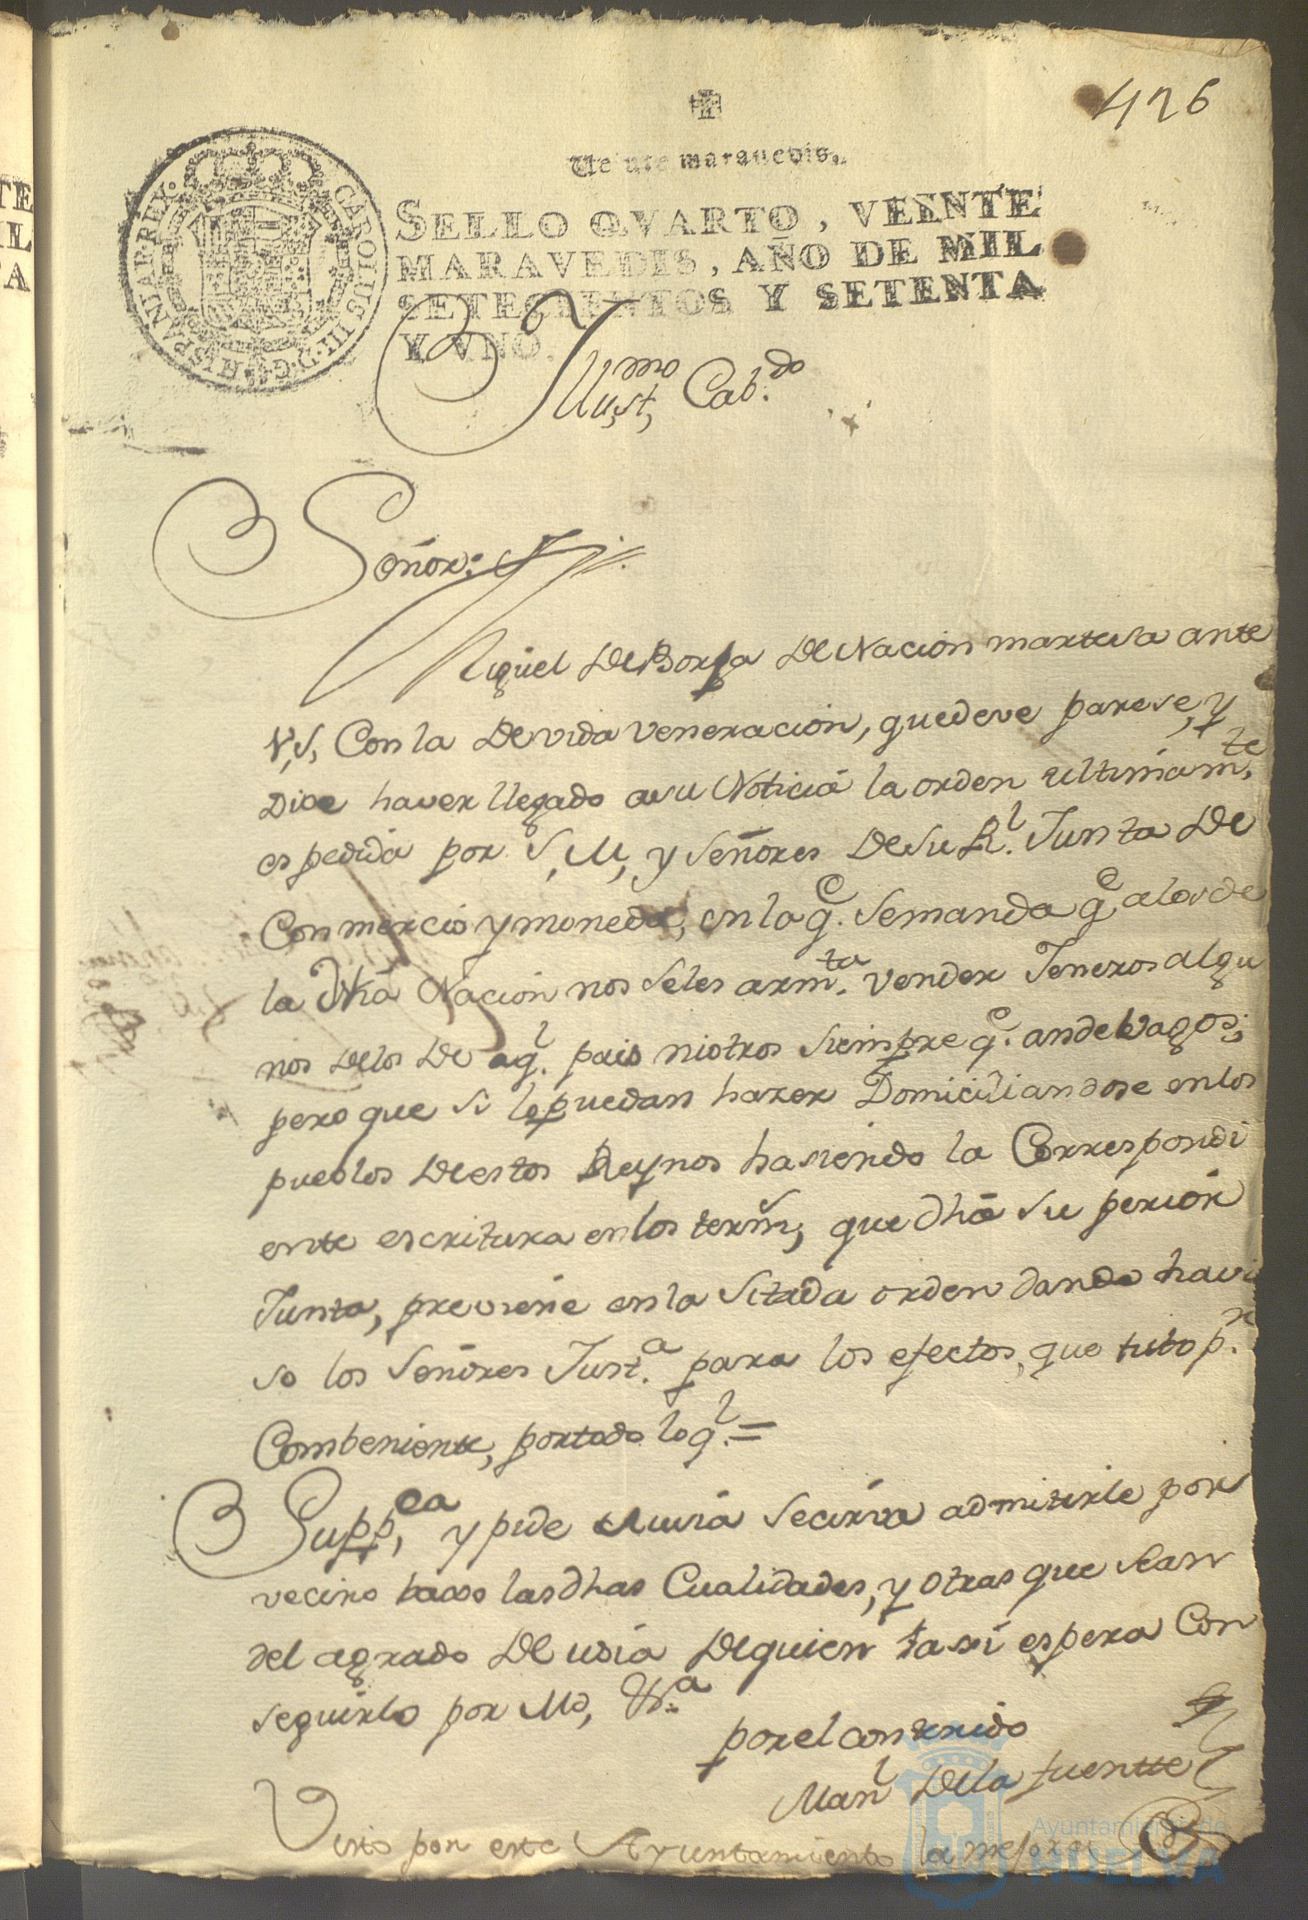 426
Veinte maravedis.
SELLO QVARTO, VEINTE
MARAVEDIS, AÑO DE MIL
SETECIENTOS Y SETENTA
Y VNO.
CAROLUS III·D·G·HISPANIAR·REX·
Illust,mo Cab.do
Señor:
Miguel De Borja De Nacion martesa ante
V,S, Con la Devida veneracion, que deve parese, y
Dice haver llegado asu Noticia la orden ultimam,te
espedida por S,M, y señores De su Rl. Junta De
Conmercio y moneda, en la q.e se manda q.e a los de
la Dha Nacion nos seles arm.ta vender Jeneros algu
nos Delos De aql. pais niotros siempre q.e ande bagos;
pero que si lo puedan hazer Domiciliandose en los
pueblos De estos Reynos hasiendo la Correspondi
ente escritura en los terms, que dha su perior
Junta, previene en la Sitada orden dando havi
so los Señores Just.a para los efectos, que tubo p.r
Combeniente, portodo lo ql. =
Supp,ca y pide a usia se cirva admitirle por
vecino baxo las dhas Cualidades, y otras que sean
del agrado De usia De quien tasi espera Con
seguirlo por Md, &.a
por el contenido
Manl De la fuentte
Visto por este Ayuntamiento la
Ayuntamiento de
HUELVA